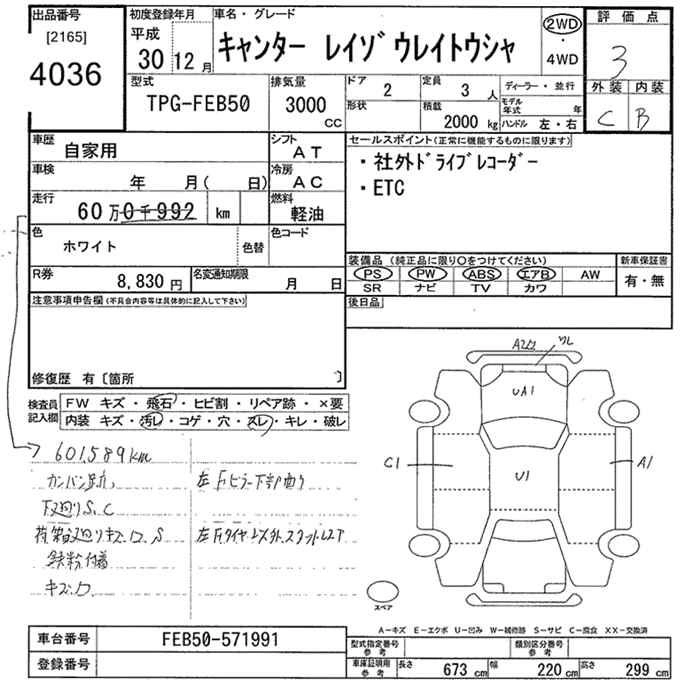 出品番号
[2165]
4036
初度登録年月
平成
30年12月
車名・グレード
キャンター レイゾウレイトウシャ
2WD
・
4WD
評価点
3
外装 内装
C B
型式
TPG-FEB50
排気量
3000
CC
ドア
2
定員
3人
形状
積載
2000kg
ディーラー・並行
モデル年式 年
ハンドル 左・右
車歴
自家用
シフト
AT
車検
年 月( 日)
冷房
AC
走行
60万0千992 km
燃料
軽油
色
ホワイト
色替
色コード
R券
8,830円
名変通知期限
月 日
セールスポイント(正常に機能するものに限ります)
・社外ドライブレコーダー
・ETC
装備品(純正品に限り〇をつけてください)
新車保証書
PS PW ABS エアB AW
有・無
SR ナビ TV カワ
後日品
注意事項申告欄(不具合内容等は具体的に記入して下さい)
修復歴 有〔箇所 〕
検査員記入欄
FW キズ・飛石・ヒビ割・リペア跡・×要
内装 キズ・汚レ・コゲ・穴・スレ・キレ・破レ
601,589km
下廻りS、C
鉄粉付着
キズ、ワ
UA1
C1
U1
A1
スペア
A−キズ E−エクボ U−凹み W−補修跡 S−サビ C−腐食 XX−交換済
車台番号
FEB50-571991
登録番号
型式指定番号
参考
類別区分番号
参考
車庫証明用
参考
長さ 673cm 幅 220cm 高さ 299cm